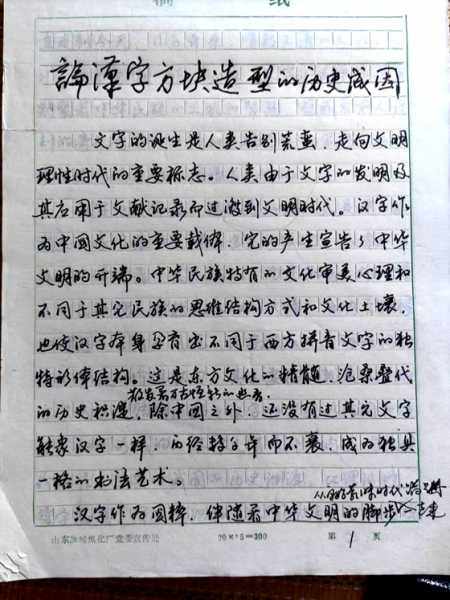 稿 纸
论汉字方块造型的历史成因
文字的诞生是人类告别荒蛮、走向文明
理性时代的重要标志。人类由于文字的发明及
其后用于文献记录而过渡到文明时代。汉字作
为中国文化的重要载体，它的产生宣告了中华
文明的开端。中华民族特有的文化审美心理和
不同于其它民族的思维结构方式和文化土壤，
也使汉字本身孕育出不同于西方拼音文字的独
特形体结构。这是东方文化的精髓，沧桑叠代
的历史积淀，除中国之外，还没有过其它文字
能象汉字一样，历经特多年而不衰，成为独具
一格的书法艺术。
从 时代
汉字作为国粹，伴随着中华文明的脚步
山东 焦化厂党委宣传处 20×15=300 第 1 页